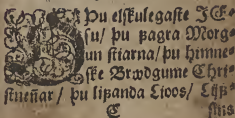 Ðu elskulegaste JE-
su/ þu fagra Morg
un stiarna/ þu himne-
ske Brwdgume Chri-
stneñar/ þu lifanda Lioos/ Lijfs-
C skis